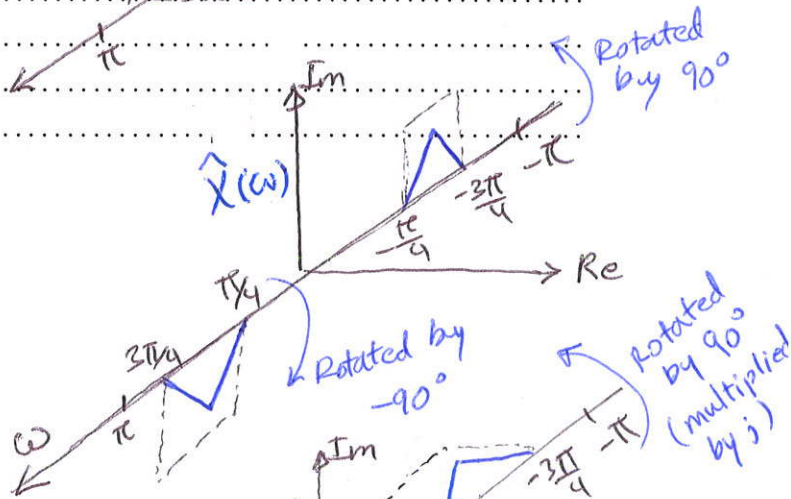 π
Rotated
by 90°
Im
X̂(ω)
-π
-3π/4
-π/4
Re
π/4
3π/4
π
ω
Rotated by
-90°
Rotated
by 90°
(multiplied
by j)
Im
-π
-3π/4